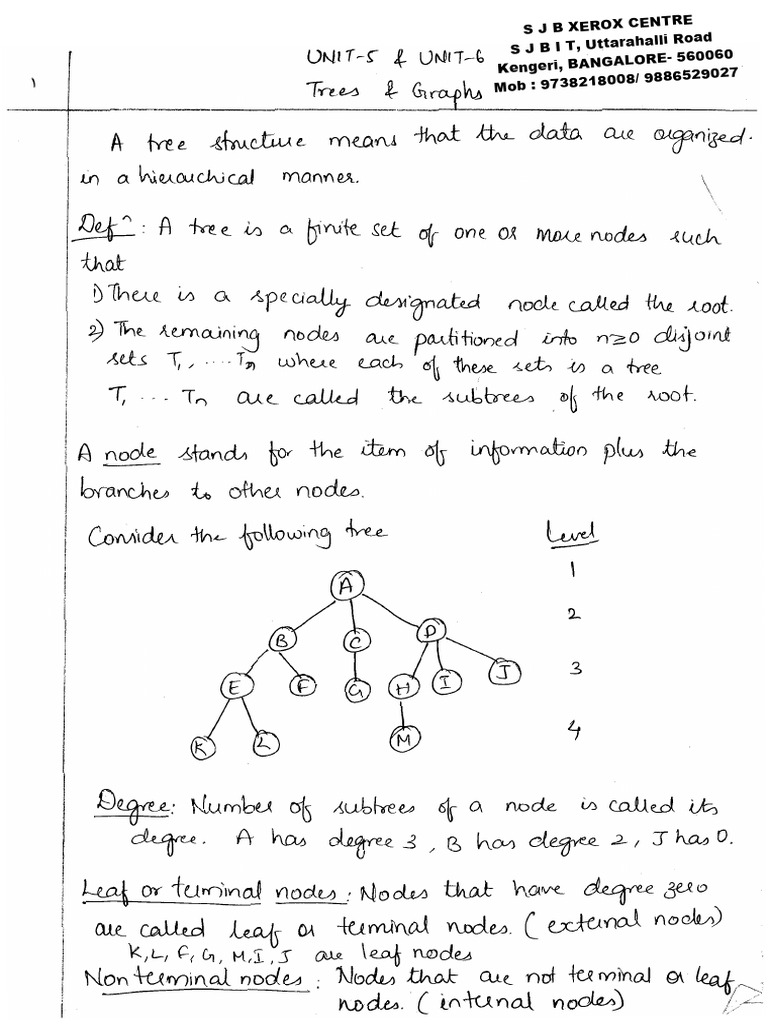 S J B XEROX CENTRE
S J B I T, Uttarahalli Road
Kengeri, BANGALORE- 560060
Mob : 9738218008/ 9886529027
UNIT-5 & UNIT-6
Trees & Graphs
1
A tree structure means that the data are organized.
in a hierarchical manner.
Defn: A tree is a finite set of one or more nodes such
that
1) There is a specially designated node called the root.
2) The remaining nodes are partitioned into n≥0 disjoint
sets T1, .... Tn where each of these sets is a tree
T1 ... Tn are called the subtrees of the root.
A node stands for the item of information plus the
branches to other nodes.
Consider the following tree
Level
A
1
B C D
2
E F G H I J
3
K L M
4
Degree: Number of subtrees of a node is called its
degree. A has degree 3, B has degree 2, J has 0.
Leaf or terminal nodes: Nodes that have degree zero
are called leaf or terminal nodes. (external nodes)
K, L, F, G, M, I, J are leaf nodes
Non terminal nodes: Nodes that are not terminal or leaf
nodes. (internal nodes)